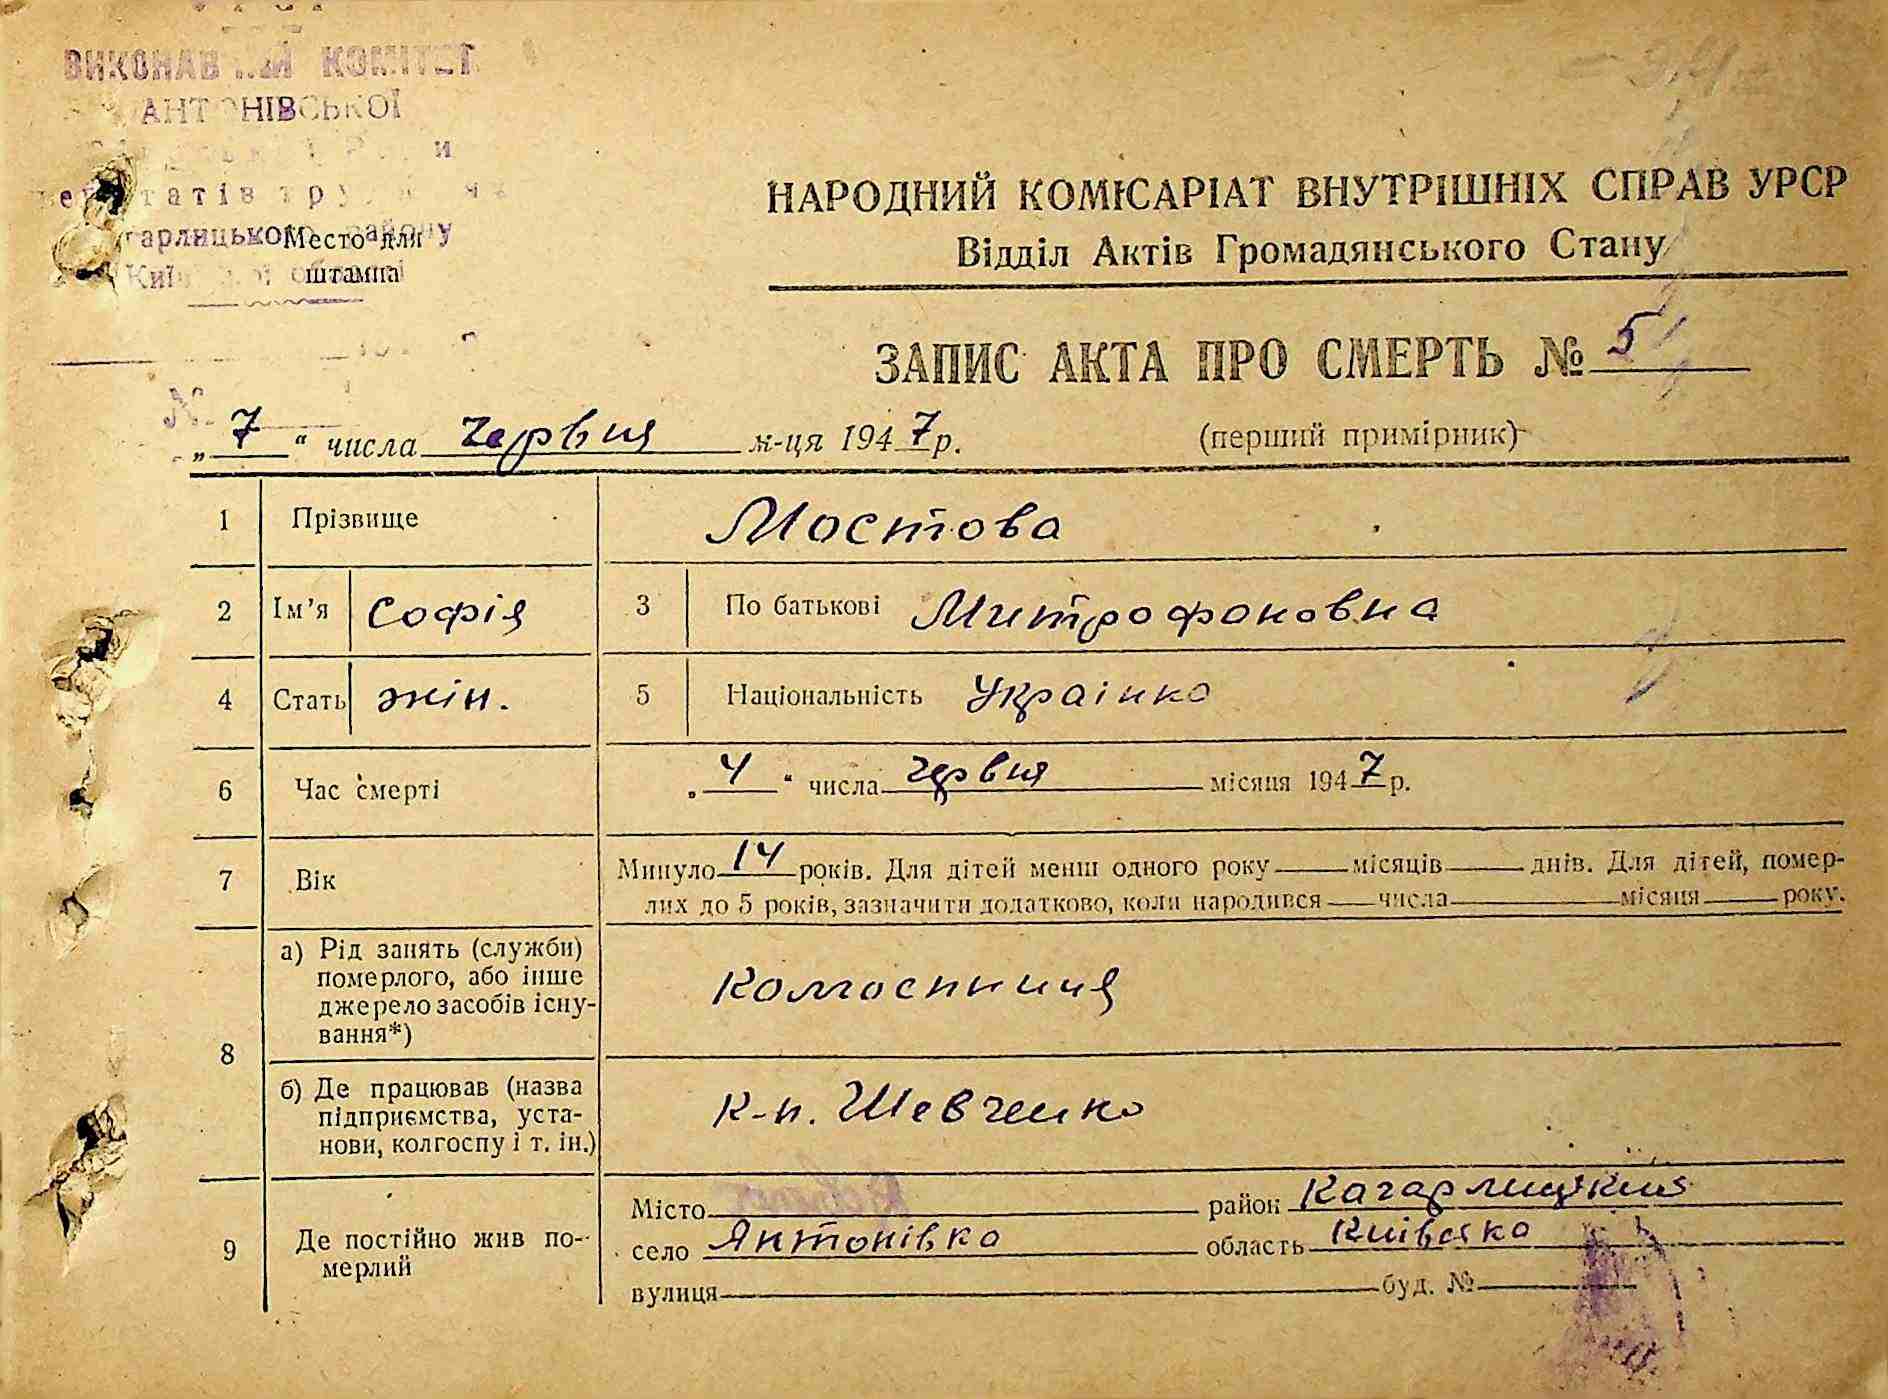 ВИКОНАВ КОМІТЕТ
АНТОНІВСЬКОЇ
Место для
штампа
НАРОДНИЙ КОМІСАРІАТ ВНУТРІШНІХ СПРАВ УРСР
Відділ Актів Громадянського Стану
ЗАПИС АКТА ПРО СМЕРТЬ № 5
„ 7 “ числа червня м-ця 1947 р. (перший примірник)
1 Прізвище Мостова
2 Ім’я Софія 3 По батькові Митрофоновна
4 Стать жін. 5 Національність Украінка
6 Час смерті „ 4 “ числа червня місяця 1947 р.
7 Вік Минуло 14 років. Для дітей менш одного року місяців днів. Для дітей, помер-
лих до 5 років, зазначити додатково, коли народився числа місяця року.
8 а) Рід занять (служби)
померлого, або інше
джерело засобів існу-
вання*) Колгоспниця
б) Де працював (назва
підприємства, уста-
нови, колгоспу і т. ін.) к-п. Шевченко
9 Де постійно жив по-
мерлий
Місто район Кагарлицький
село Антонівка область Київська
вулиця буд. №